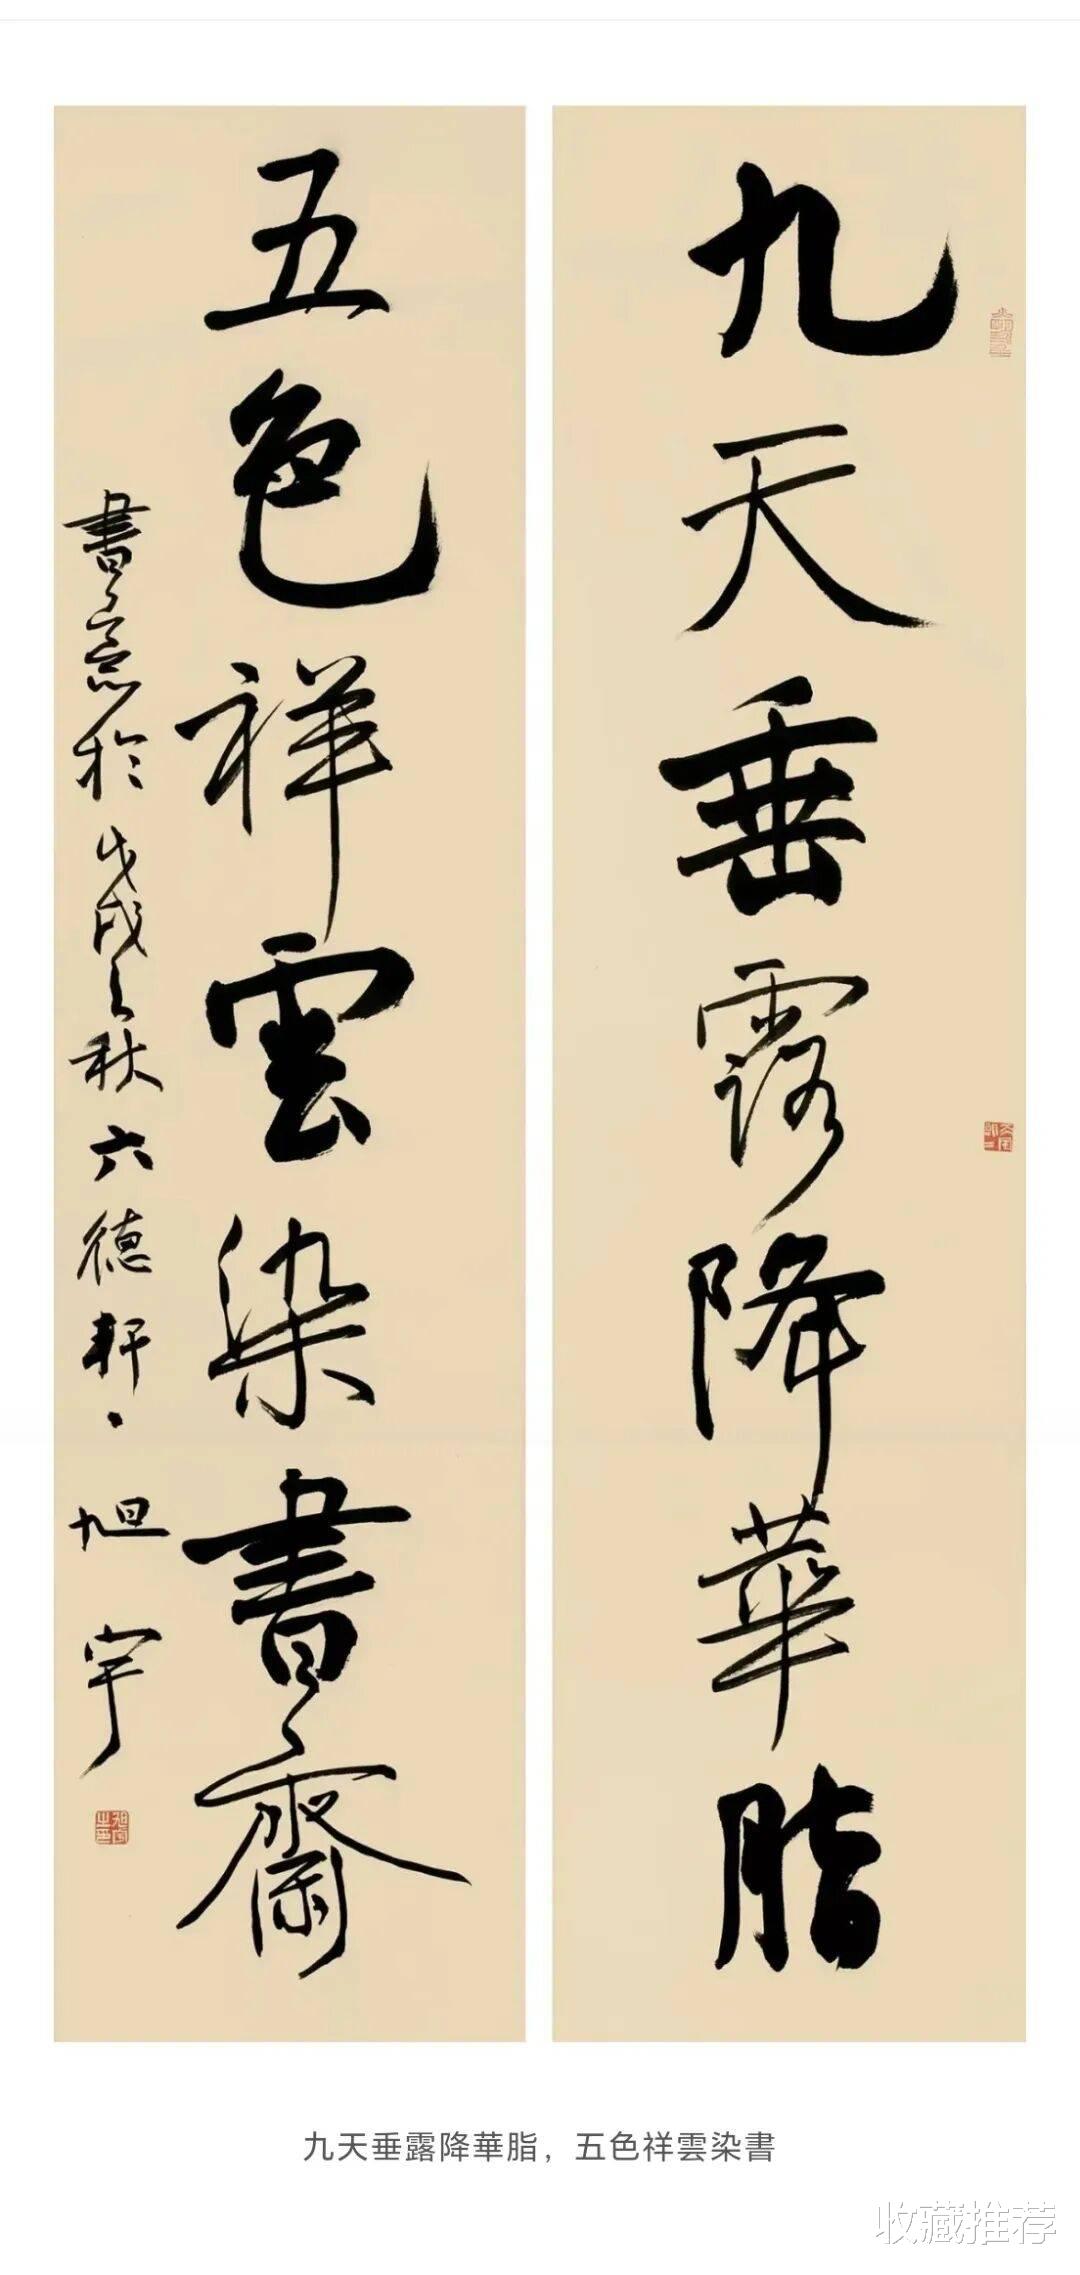 九天垂露降華脂
五色祥雲染書齋
書意於戊戌之秋六德軒、旭宇
九天垂露降華脂，五色祥雲染書
收藏推荐